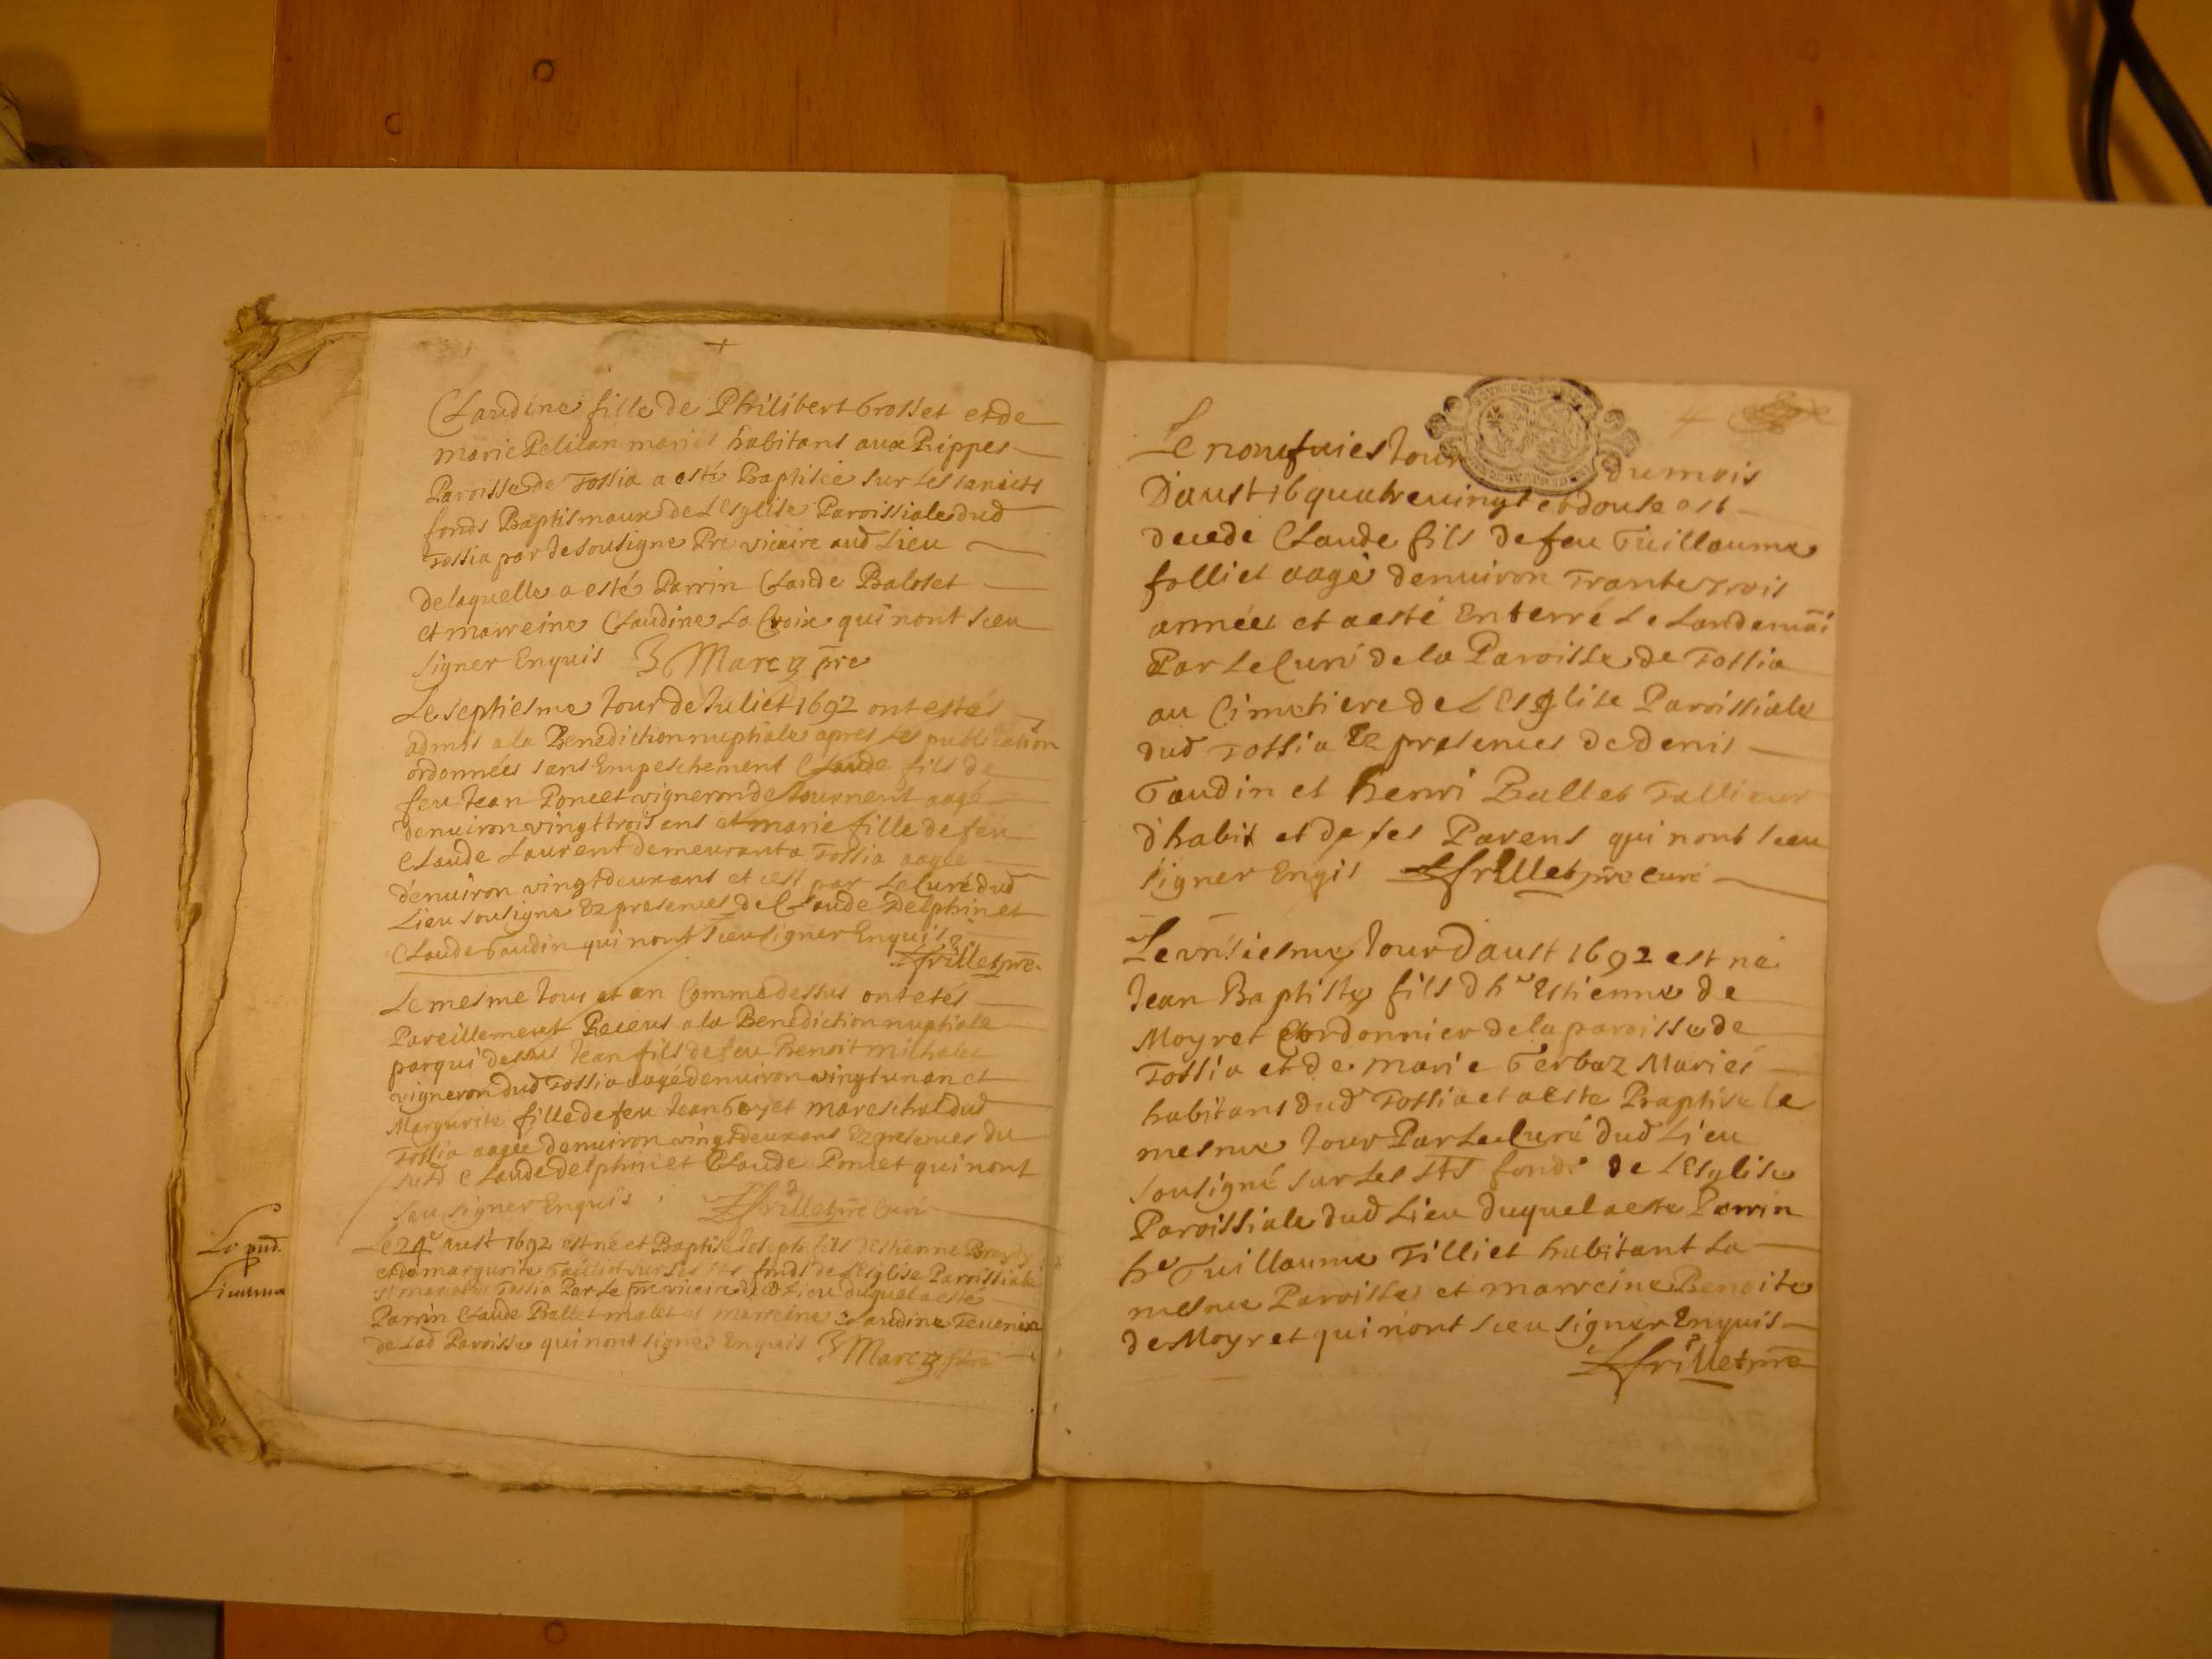 Claudine fille de Philibert Grosset et de
marie Pelican mariés habitans aux Rippes
Paroisse de Fossia a esté Baptisée sur les saincts
fonds Baptismaux de L'Esglise Paroissiale dud
Fossia par Le sousigne Pre vicaire aud Lieu
delaquelle a esté Parrin Claude Baloset
et marreine Claudine La Croix qui nont sceu
signer Enquis Marcq pre
Le septiesme Jour de Juliet 1692 ont estés
admis a la Benediction nuptiale apres Les publication
ordonnées sans Empeschement Claude fils de
feu Jean Poncet vigneron de tournent aagé
denuiron vingt trois ans et marie fille de feu
Claude Laurent demeurant a Fossia aagée
denuiron vingt deux ans et cest par Le Curé dud
Lieu sousigne Ez presences de Claude Delphin et
Claude Gaudin qui nont sceu signer Enquis
frillet pre
Le mesme Jour et an Comme dessus ont etés
Pareillement Receus a la Benediction nuptiale
par qui dessus Jean fils de feu Benoit michalet
vigneron dud Fossia aagé denuiron vingt un an et
Margurite fille de feu Jean Goyet mareschal dud
Fossia aagée denuiron vingt deux ans Ez presences du
susd Claude delphin et Claude Poncet qui nont
sceu signer Enquis frillet pre Curé
Le 24e Aust 1692 est né et Baptisé Joseph fils d'Estienne
et de margurite sur Les sts fonds de L'Esglise Paroissiale
de Fossia Par Le pre vicaire dud Lieu duquel a esté
Parrin Claude Ballet malet et marreine Claudine
de Lad Paroisse qui nont signes Enquis Marcq pbre
4
Le noufuies Jour du mois
D'aust 16 quatre vingt et douse est
decede Claude fils de feu Guillaume
folliet aagé denuiron Trante trois
années et a esté Enterré Le Landemai
Par Le Curé de la Paroisse de Fossia
au Cimetiere de L'Esglise Paroissiale
dud Fossia Ez presences de denis
Gaudin et henri Ballet Tallieur
d'habit et de ses Parens qui nont sceu
signer Enqis frillet pre curé
Le vnsiesme Jour D'aust 1692 est né
Jean Baptiste fils d'he Estienne de
Moyret Cordonnier de la paroisse de
Fossia et de marie Gerbaz Mariés
habitans dud Fossia et a esté Baptisé le
mesme Jour Par Le Curé dud Lieu
sousigné sur Les sts fonds de L'Esglise
Paroissiale dud Lieu duquel a este Parrin
he Guillaume Filliet habitant La
mesme Paroisse et marreine Benoite
de Moyret qui nont sceu signer Enquis
frillet pre